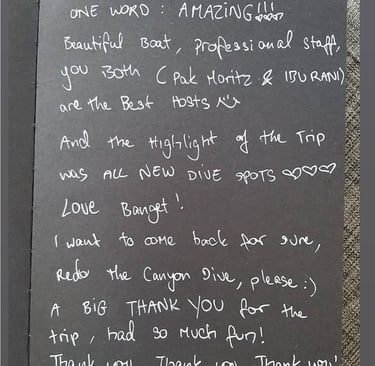 ONE WORD : AMAZING!!!
Beautiful Boat, professional staff,
you both (Pak Moritz & IBU RANI)
are the Best Hosts
And the Highlight of the Trip
was ALL NEW DIVE SPOTS ♡♡♡
Love Banget!
I want to come back for sure,
Redo the Canyon Dive, please :)
A BIG THANK YOU for the
trip, had so much fun!
Thank you, Thank you, Thank you!